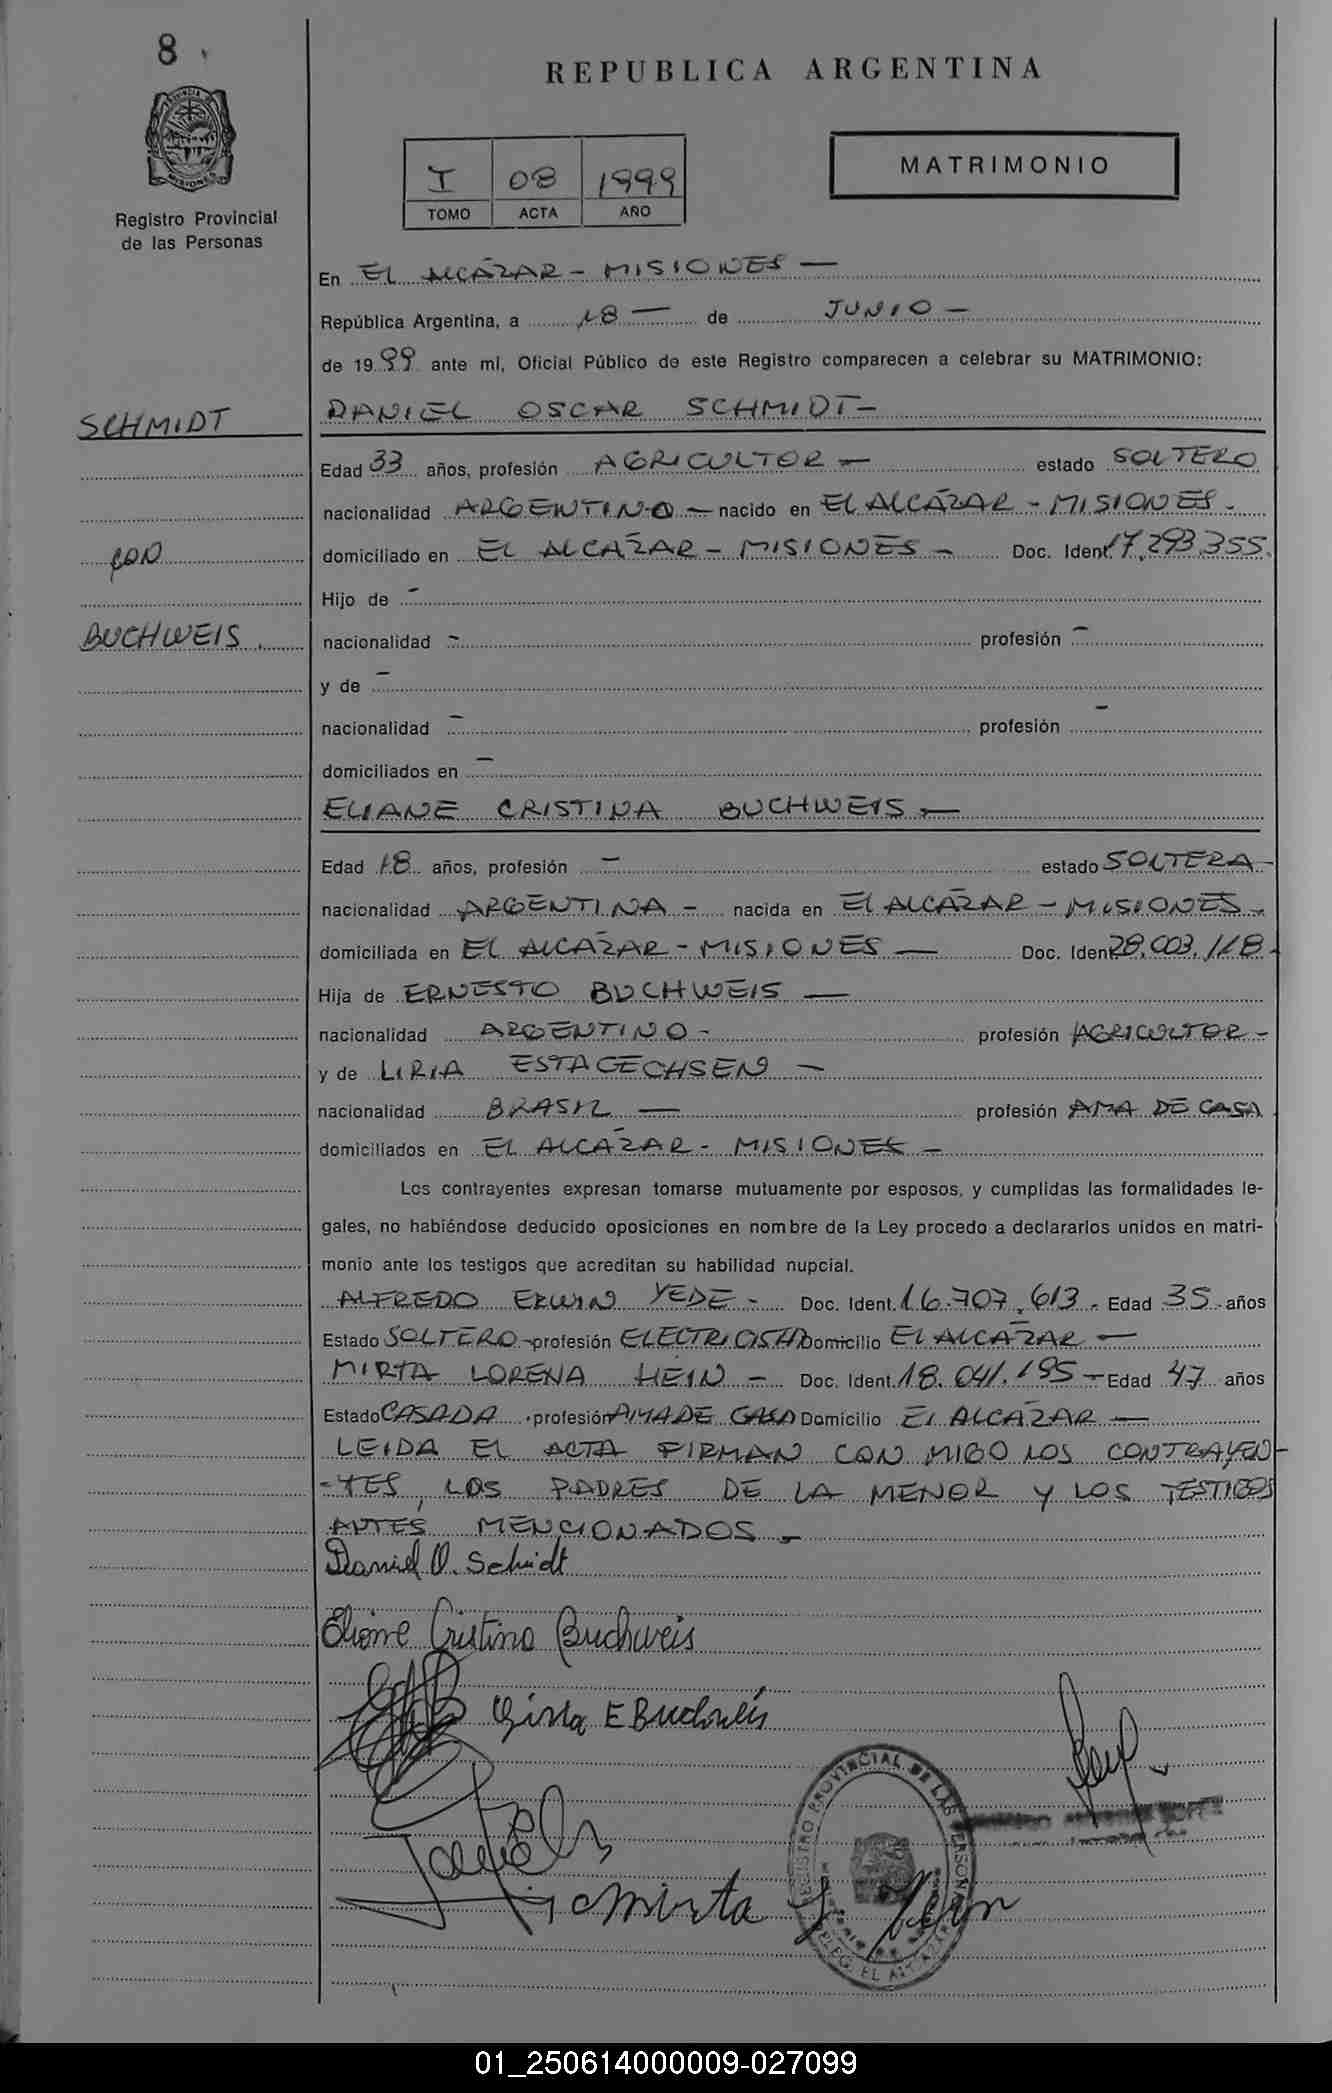 8
REPUBLICA ARGENTINA
MATRIMONIO
I 08 1999
TOMO ACTA AÑO
PROVINCIA DE
MISIONES
Registro Provincial
de las Personas
En EL ALCÁZAR - MISIONES —
República Argentina, a 18 — de JUNIO -
de 1999 ante mí, Oficial Público de este Registro comparecen a celebrar su MATRIMONIO:
SCHMIDT
DANIEL OSCAR SCHMIDT-
Edad 33 años, profesión AGRICULTOR - estado SOLTERO
nacionalidad ARGENTINO - nacido en EL ALCÁZAR - MISIONES -
CON
domiciliado en EL ALCÁZAR - MISIONES - Doc. Ident. 17.293.355.
Hijo de -
BUCHWEIS.
nacionalidad - profesión -
y de -
nacionalidad - profesión -
domiciliados en -
ELIANE CRISTINA BUCHWEIS.-
Edad 18 años, profesión - estado SOLTERA-
nacionalidad ARGENTINA - nacida en EL ALCÁZAR - MISIONES-
domiciliada en EL ALCÁZAR - MISIONES — Doc. Ident 28.003.118-
Hija de ERNESTO BUCHWEIS —
nacionalidad ARGENTINO- profesión AGRICULTOR-
y de LIRIA ESTAGECHSEN -
nacionalidad BRASIL — profesión AMA DE CASA
domiciliados en EL ALCÁZAR - MISIONES -
Los contrayentes expresan tomarse mutuamente por esposos, y cumplidas las formalidades le-
gales, no habiéndose deducido oposiciones en nombre de la Ley procedo a declararlos unidos en matri-
monio ante los testigos que acreditan su habilidad nupcial.
ALFREDO ERWIN YEDE - Doc. Ident. 16.707.613. Edad 35 años
Estado SOLTERO- profesión ELECTRICISTA Domicilio EL ALCÁZAR —
MIRTA LORENA HEIN - Doc. Ident. 18.041.195 - Edad 47 años
Estado CASADA profesión AMA DE CASA Domicilio El ALCÁZAR —
LEIDA EL ACTA FIRMAN CON MIGO LOS CONTRAYEN-
-TES, LOS PADRES DE LA MENOR Y LOS TESTIGOS
ANTES MENCIONADOS -
Daniel O. Schidt
Eliane Cristina Buchweis
E Buchweis
Mirta
REGISTRO PROVINCIAL DE LAS PERSONAS
DELEG. EL ALCAZAR
01_250614000009-027099